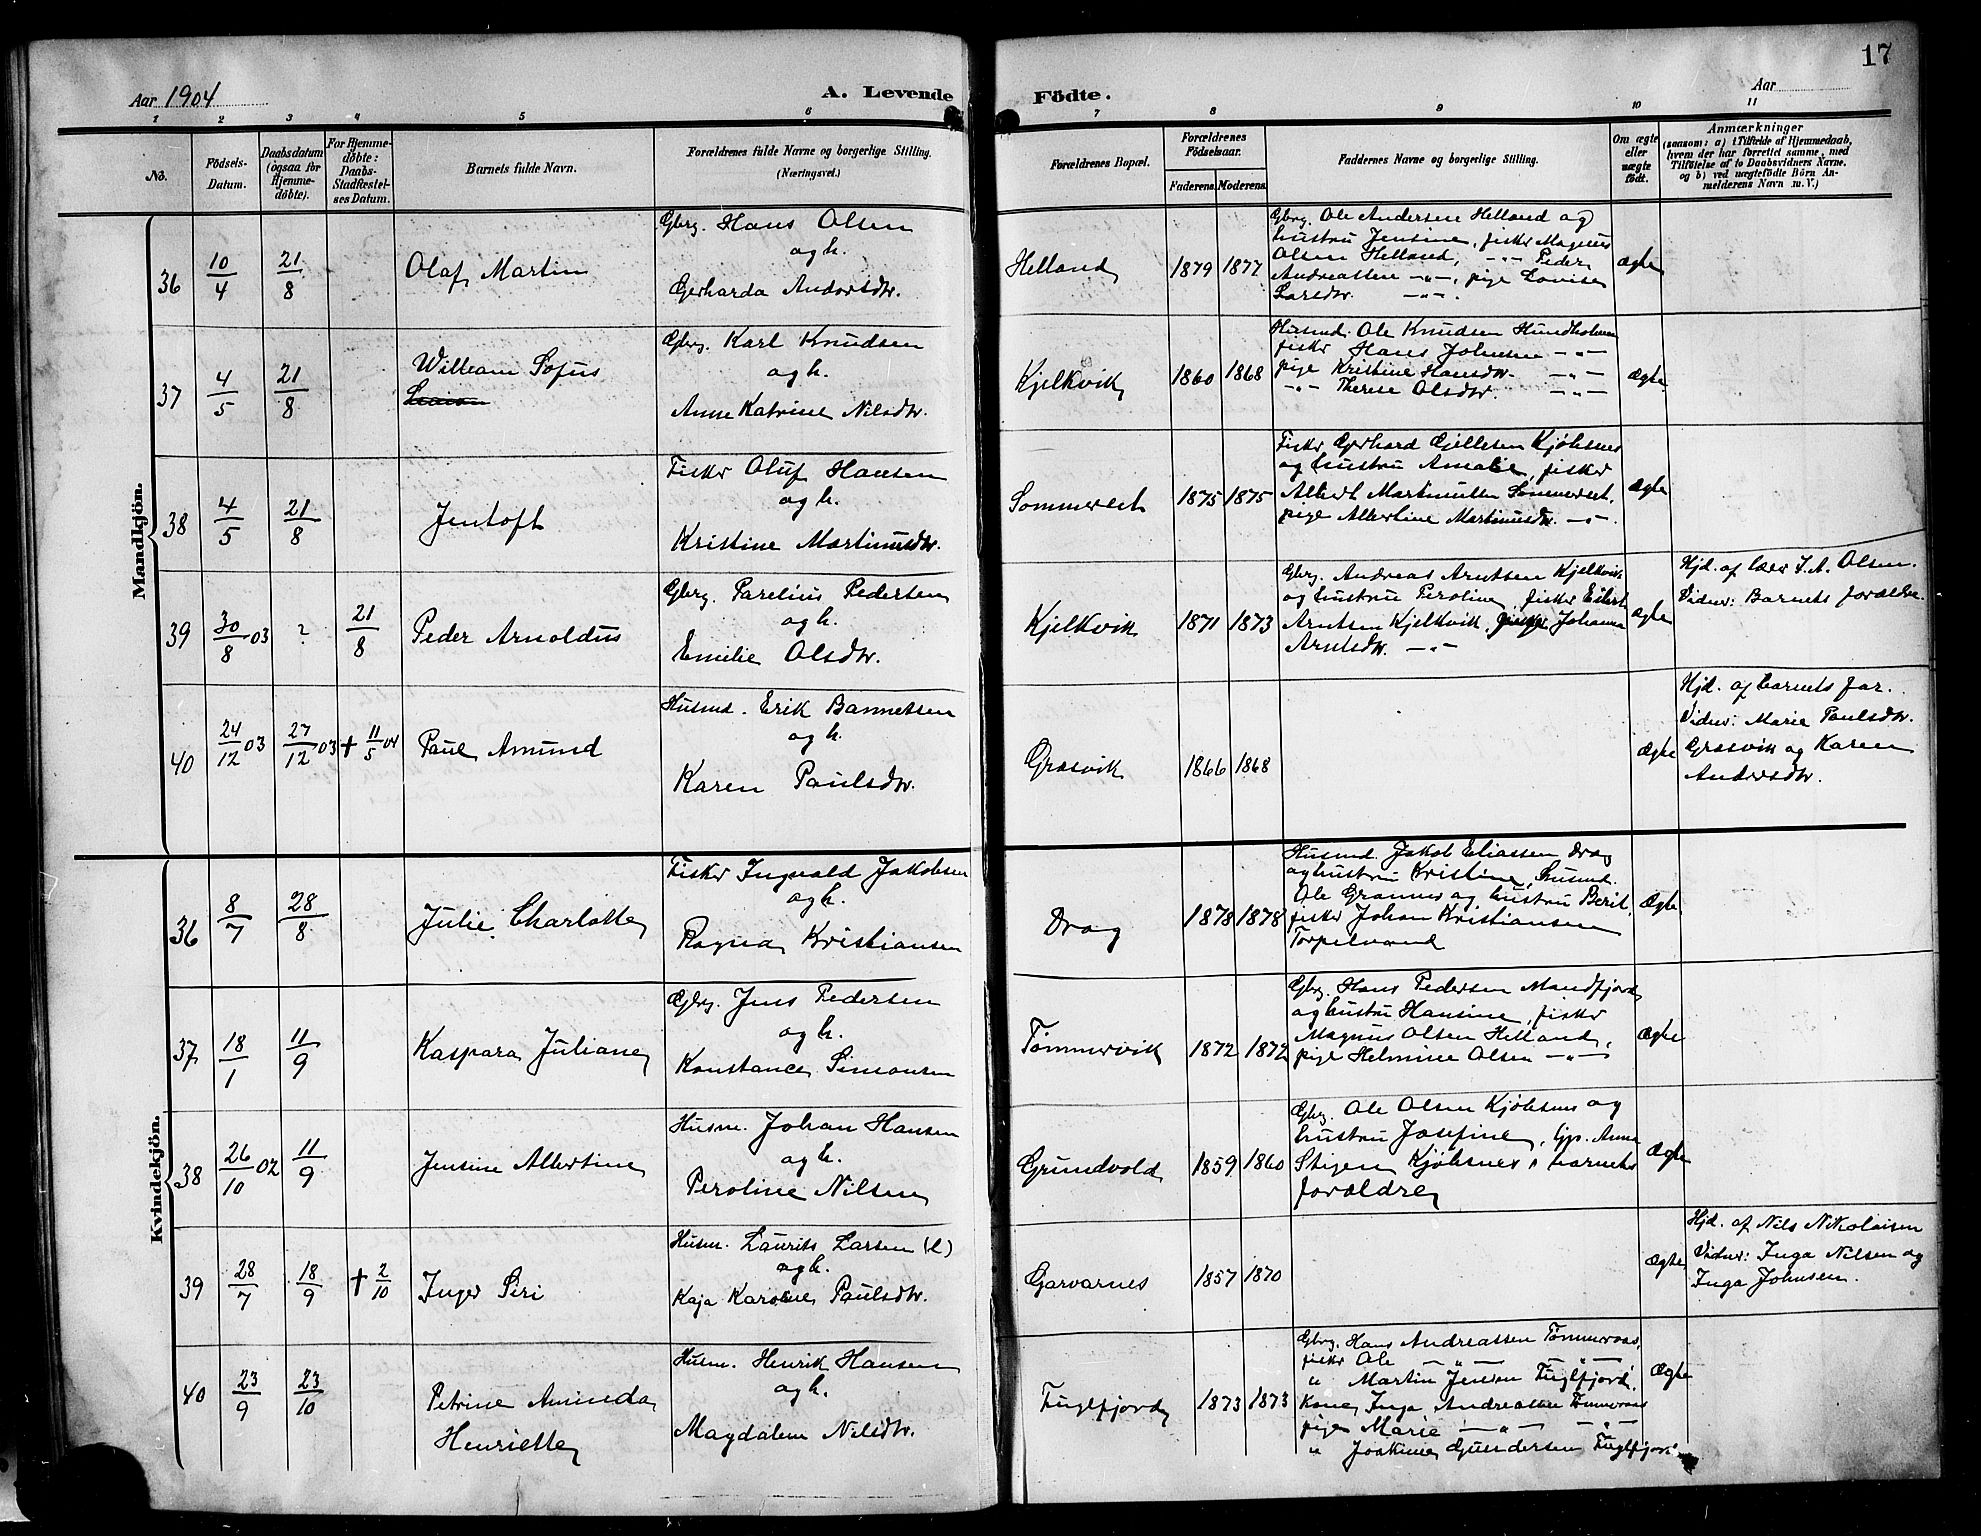 17
Aar 1904
A. Levende
Födte.
Aar
1 2 3 4 5 6 7 8 9 10 11
No.
Födsels-
Datum.
Daabsdatum
(ogsaa for
Hjemme-
döbte).
For Hjemme-
döbte:
Daabs-
Stadfæstel-
ses Datum.
Barnets fulde Navn.
Forældrenes fulde Navne og borgerlige Stilling.
(Næringsvei.)
Forældrenes Bopæl.
Forældrenes
Födselsaar.
Faderens. Moderens.
Faddernes Navne og borgerlige Stilling.
Om ægte
eller
uægte
födt.
Anmærkninger
(saasom: a) i Tilfælde af Hjemmedaab,
hvem der har forrettet samme, med
Tilföielse af to Daabsvidners Navne.
og b) ved uægtefödte Börn An-
melderens Navn m. V.)
Mandkjön.
36
10/4
21/8
Olaf Martin
Gbrg. Hans Olsen
og h.
Gerharda Andorsdtr.
Helland
1879
1877
Gbrg. Ole Andersen Helland og
hustru Jensine, fisker Magnus
Olsen Helland, -"- Peder
Andreassen -"-, pige Lovise
Larsdtr. -"-.
Ægte
37
4/5
21/8
William Sofus
Gbrg. Karl Knudsen
og h.
Anne Katrine Nilsdtr.
Kjelkvik
1860
1868
Husmd. Ole Knudsen Hundholmen
fisker Hans Johnsen -"-
pige Kristine Hansdtr. -"-
-"- Therese Olsdtr. -"-
Ægte
38
4/5
21/8
Jentoft
Fisker Oluf Hansen
og h.
Kristine Martinusdtr.
Sommerset
1875
1875
Fisker Gerhard Gjellesen Kjøbsnes
og hustru Amalie, fisker
Albert Martinussen Sommerset,
pige Albertine Martinusdtr. -"-.
Ægte
39
30/8 03
?
21/8
Peder Arnoldus
Gbrg. Parelius Pedersen
og h.
Emilie Olsdtr.
Kjelkvik
1871
1873
Gbrg. Andreas Arntsen Kjelkvik
og hustru Peroline, fisker Edvart
Arntsen Kjelkvik, pige Johanna
Arntsdtr. -"-
Ægte
Hjd. af lærer J. A. Olsen.
Vidner: Barnets forældre.
40
24/12 03
27/12 03
† 11/5 04
Paul Amund
Husmd. Erik Bannetsen
og h.
Karen Paulsdtr.
Græsvik
1866
1868
Ægte
Hjd. af barnets far.
Vidner: Marie Paulsdtr.
Græsvik og Karen
Andersdtr.
Kvindekjön.
36
8/7
28/8
Julie Charlotte
Fisker Ingvald Jakobsen
og h.
Ragna Kristiansen
Drag
1878
1878
Husmd. Jakob Eliassen Drag
og hustru Kristine, husmd.
Ole Grannes og hustru Berit,
fisker Johan Kristiansen
Torpelvand
Ægte
37
18/1
11/9
Kaspara Juliane
Gbrg. Jens Pedersen
og h.
Konstance Simonsen
Tømmervik
1872
1872
Gbrg. Hans Pedersen Mandfjord
og hustru Hansine, fisker
Magnus Olsen Helland,
pige Helmine Olsen -"-
Ægte
38
26/10 02
11/9
Jensine Albertine
Husm. Johan Hansen
og h.
Peroline Nilsen
Grundvold
1859
1860
Gbrg. Ole Olsen Kjøbsnes og
hustru Josefine, Anna
Stigen Kjøbsnes, barnets
forældre
Ægte
39
28/7
18/9
† 2/10
Inger Siri
Husm. Laurits Larsen (l)
og h.
Kaja Karoline Paulsdtr.
Garvarnes
1857
1870
Ægte
Hjd. af Nils Nikolaisen
Vidner: Inga Nilsen og
Inga Johnsen.
40
23/9
23/10
Petrine Aminda
Henriette
Husm. Henrik Hansen
og h.
Magdalene Nilsdtr.
Fuglfjord
1873
1873
Gbrg. Hans Andreassen Tømmeraas,
fisker Ole -"- -"-
" Martin Jensen Fuglfjord,
Kone Inga Andreassen Tømmeraas
pige Marie -"- -"-
" Joakime Gundersen Fuglfjord
Ægte